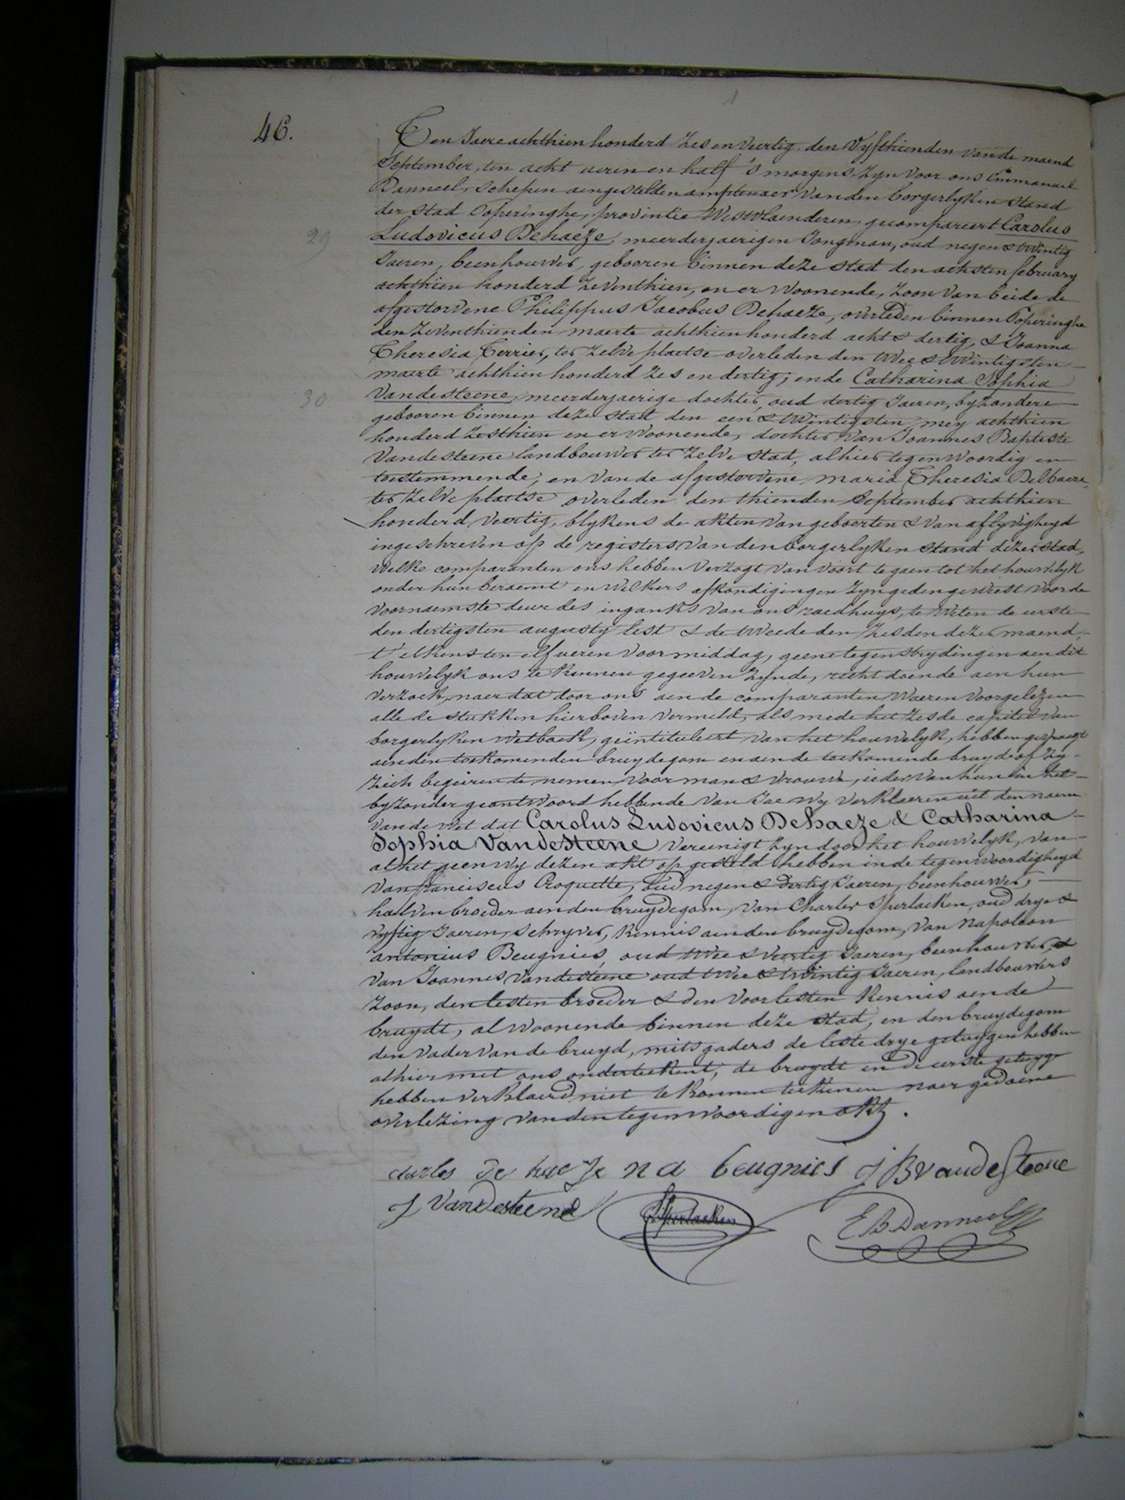 46.
Ten Jaere achthien honderd zes en veertig den vyfthienden van de maend
September, ten acht ueren en half 's morgens zyn voor ons Emmanuel
Danneel, schepen aengestelden amptenaer van den borgerlyken stand
der stad Poperinghe, provintie Westvlaenderen, gecompareert Carolus
29
Ludovicus Dehaeze, meerderjaerigen Jongman, oud negen & twintig
Jaeren, beenhouwer, gebooren binnen deze stad den achsten february
achthien honderd zeventhien, en er woonende, zoon van beide de
afgestorvene Philippus Jacobus Dehaeze, overleden binnen Poperinghe
den zeventhienden maerte achthien honderd acht & dertig, & Joanna
Theresia Terrier, ter zelve plaetse overleden den twee & twintigsten
maerte achthien honderd zes en dertig; ende Catharina Sophia
30
Vandesteene, meerderjaerige dochter, oud dertig Jaeren, byzondere
gebooren binnen deze stad den een & twintigsten mey achthien
honderd zesthien en er woonende, dochter van Joannes Baptiste
Vandesteene landbouwer ter zelve stad, alhier tegenwoordig en
toestemmende, en van de afgestorvene maria Theresia
ter zelve plaetse overleden den thienden September achthien
honderd veertig, blykens de akten van geboorten & van aflyvigheyd
ingeschreven op de registers van den borgerlyken stand dezer stad,
welke comparanten ons hebben verzogt van voort te gaen tot het houwelyk
onder hun beraemt en welkers afkondigingen zyn geden geweest voor de
voornaemste deure des ingank's van ons raedhuys, te weten de eerste
den dertigsten augusty lest & de tweede den zesden dezer maend,
t' elkens ten elf ueren voormiddag, geene tegenstrydingen aen dit
houwelyk ons te kennen gegeeven zynde, recht doende aen hun
verzoek, naer dat door ons aen de comparanten waeren voorgelezen
alle de stukken hierboven vermeld, als mede het zesde capitel van
borgerlyken wetboek, geintituleert van het houwelyk, hebben gevraegt
aen den toekomenden bruydegom en aen de toekomende bruyd of zy
zich begeiren te nemen voor man & vrouwe, ieder van hun in het
byzonder geantwoord hebbende van Jae, wy verklaeren uit den naem
van de wet dat Carolus Ludovicus Dehaeze & Catharina
Sophia Vandesteene vereenigt zyn door het houwelyk, van
al het geen wy dezen akt op gesteld hebben in de tegenwoordigheyd
van franciscus Croquette, oud negen & dertig Jaeren, beenhouwer,
halven broeder aen den bruydegom, van Charles Sperlaeken, oud drye &
vyftig Jaeren, schryver, kennis aen den bruydegom, van Napoleon
antonius Beugnies, oud twee & veertig Jaeren, beenhouwer, &
van Joannes Vandesteene oud twee & twintig Jaeren, landbouwers
zoon, den lesten broeder & den voorlesten kennis aen de
bruydt, al woonende binnen deze stad, en den bruydegom
den vader van de bruyd, mitsgaders de leste drye getuygen hebben
alhier met ons onderteekent, de bruydt en de eerste getuyge
hebben verklaerd niet te konnen teekenen naer gedaene
overlezing van den tegenwoordigen akt.
charles De haeze n a beugnies J B vandesteene
J Vandesteene Sperlaeken E B Danneel